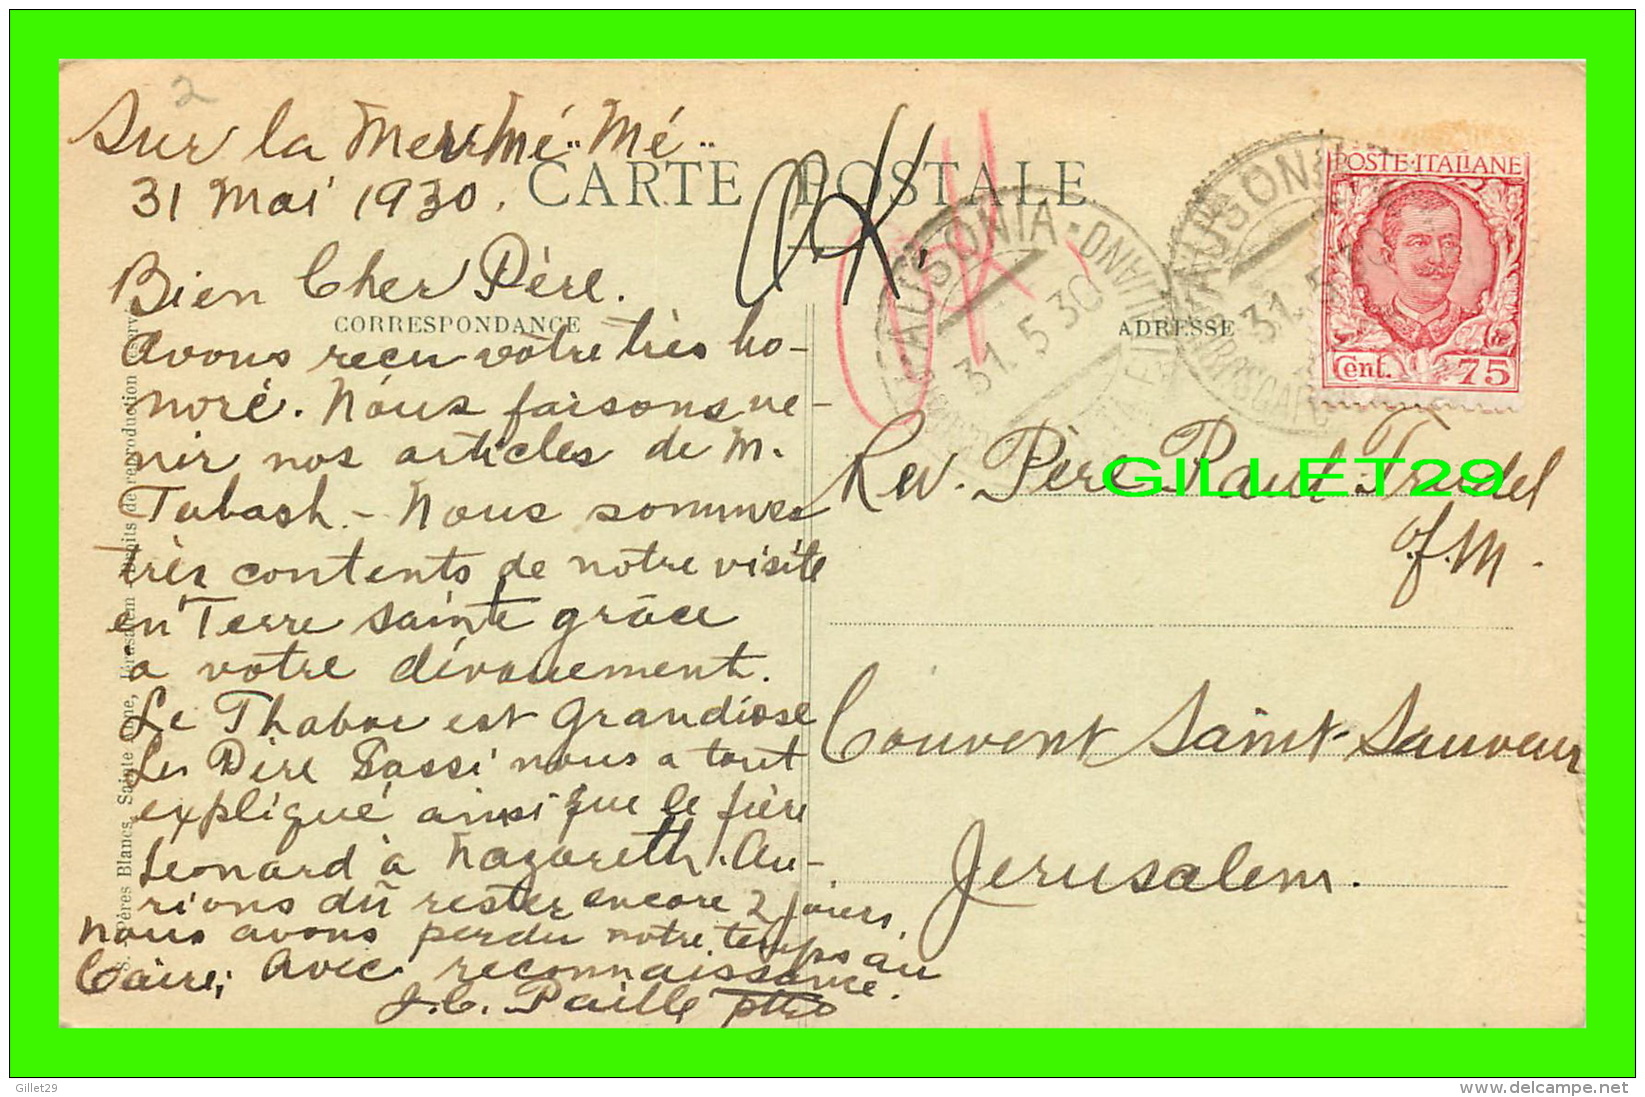 2
Sur la Mer Mé.. Mé..
31 Mai 1930.
CARTE POSTALE
Bien Cher Père.
CORRESPONDANCE
Avons reçu votre très ho-
noré. Nous faisons ve-
nir nos articles de M.
Tabash. - Nous sommes
très contents de notre visite
en Terre sainte grâce
a votre dévouement.
Le Thabor est grandiose
Le Père Sassi nous a tout
expliqué ainsi que le frère
Leonard à Nazareth. Au-
rions dû rester encore 2 jours,
nous avons perdu notre temps au
Caire; Avec reconnaissance.
J.C. Paillé ptre
Pères Blancs, Sainte Anne, Jérusalem - Droits de reproduction réservés
AUSONIA
31.5.30
AUSONIA
31.5.30
POSTE·ITALIANE
Cent. 75
ADRESSE
GILLET29
Rev. Père Paul Trudel
o.f.M.
Couvent Saint-Sauveur
Jerusalem.
Gillet29
www.delcampe.net